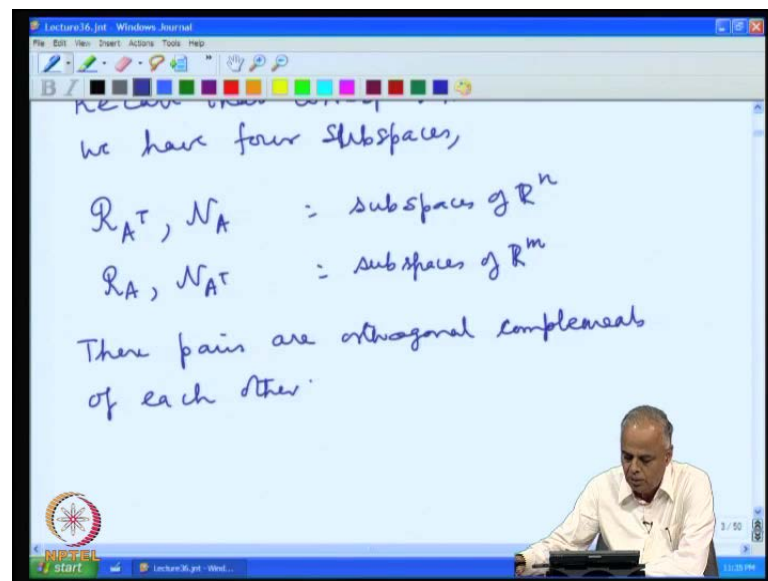 Lecture36.jnt - Windows Journal
File Edit View Insert Actions Tools Help
B I
we have four subspaces,
R_{A^T}, N_A = subspaces of R^n
R_A, N_{A^T} = subspaces of R^m
These pairs are orthogonal complements
of each other.
3 / 50
NPTEL
start Lecture36.jnt - Wind...
11:25 PM